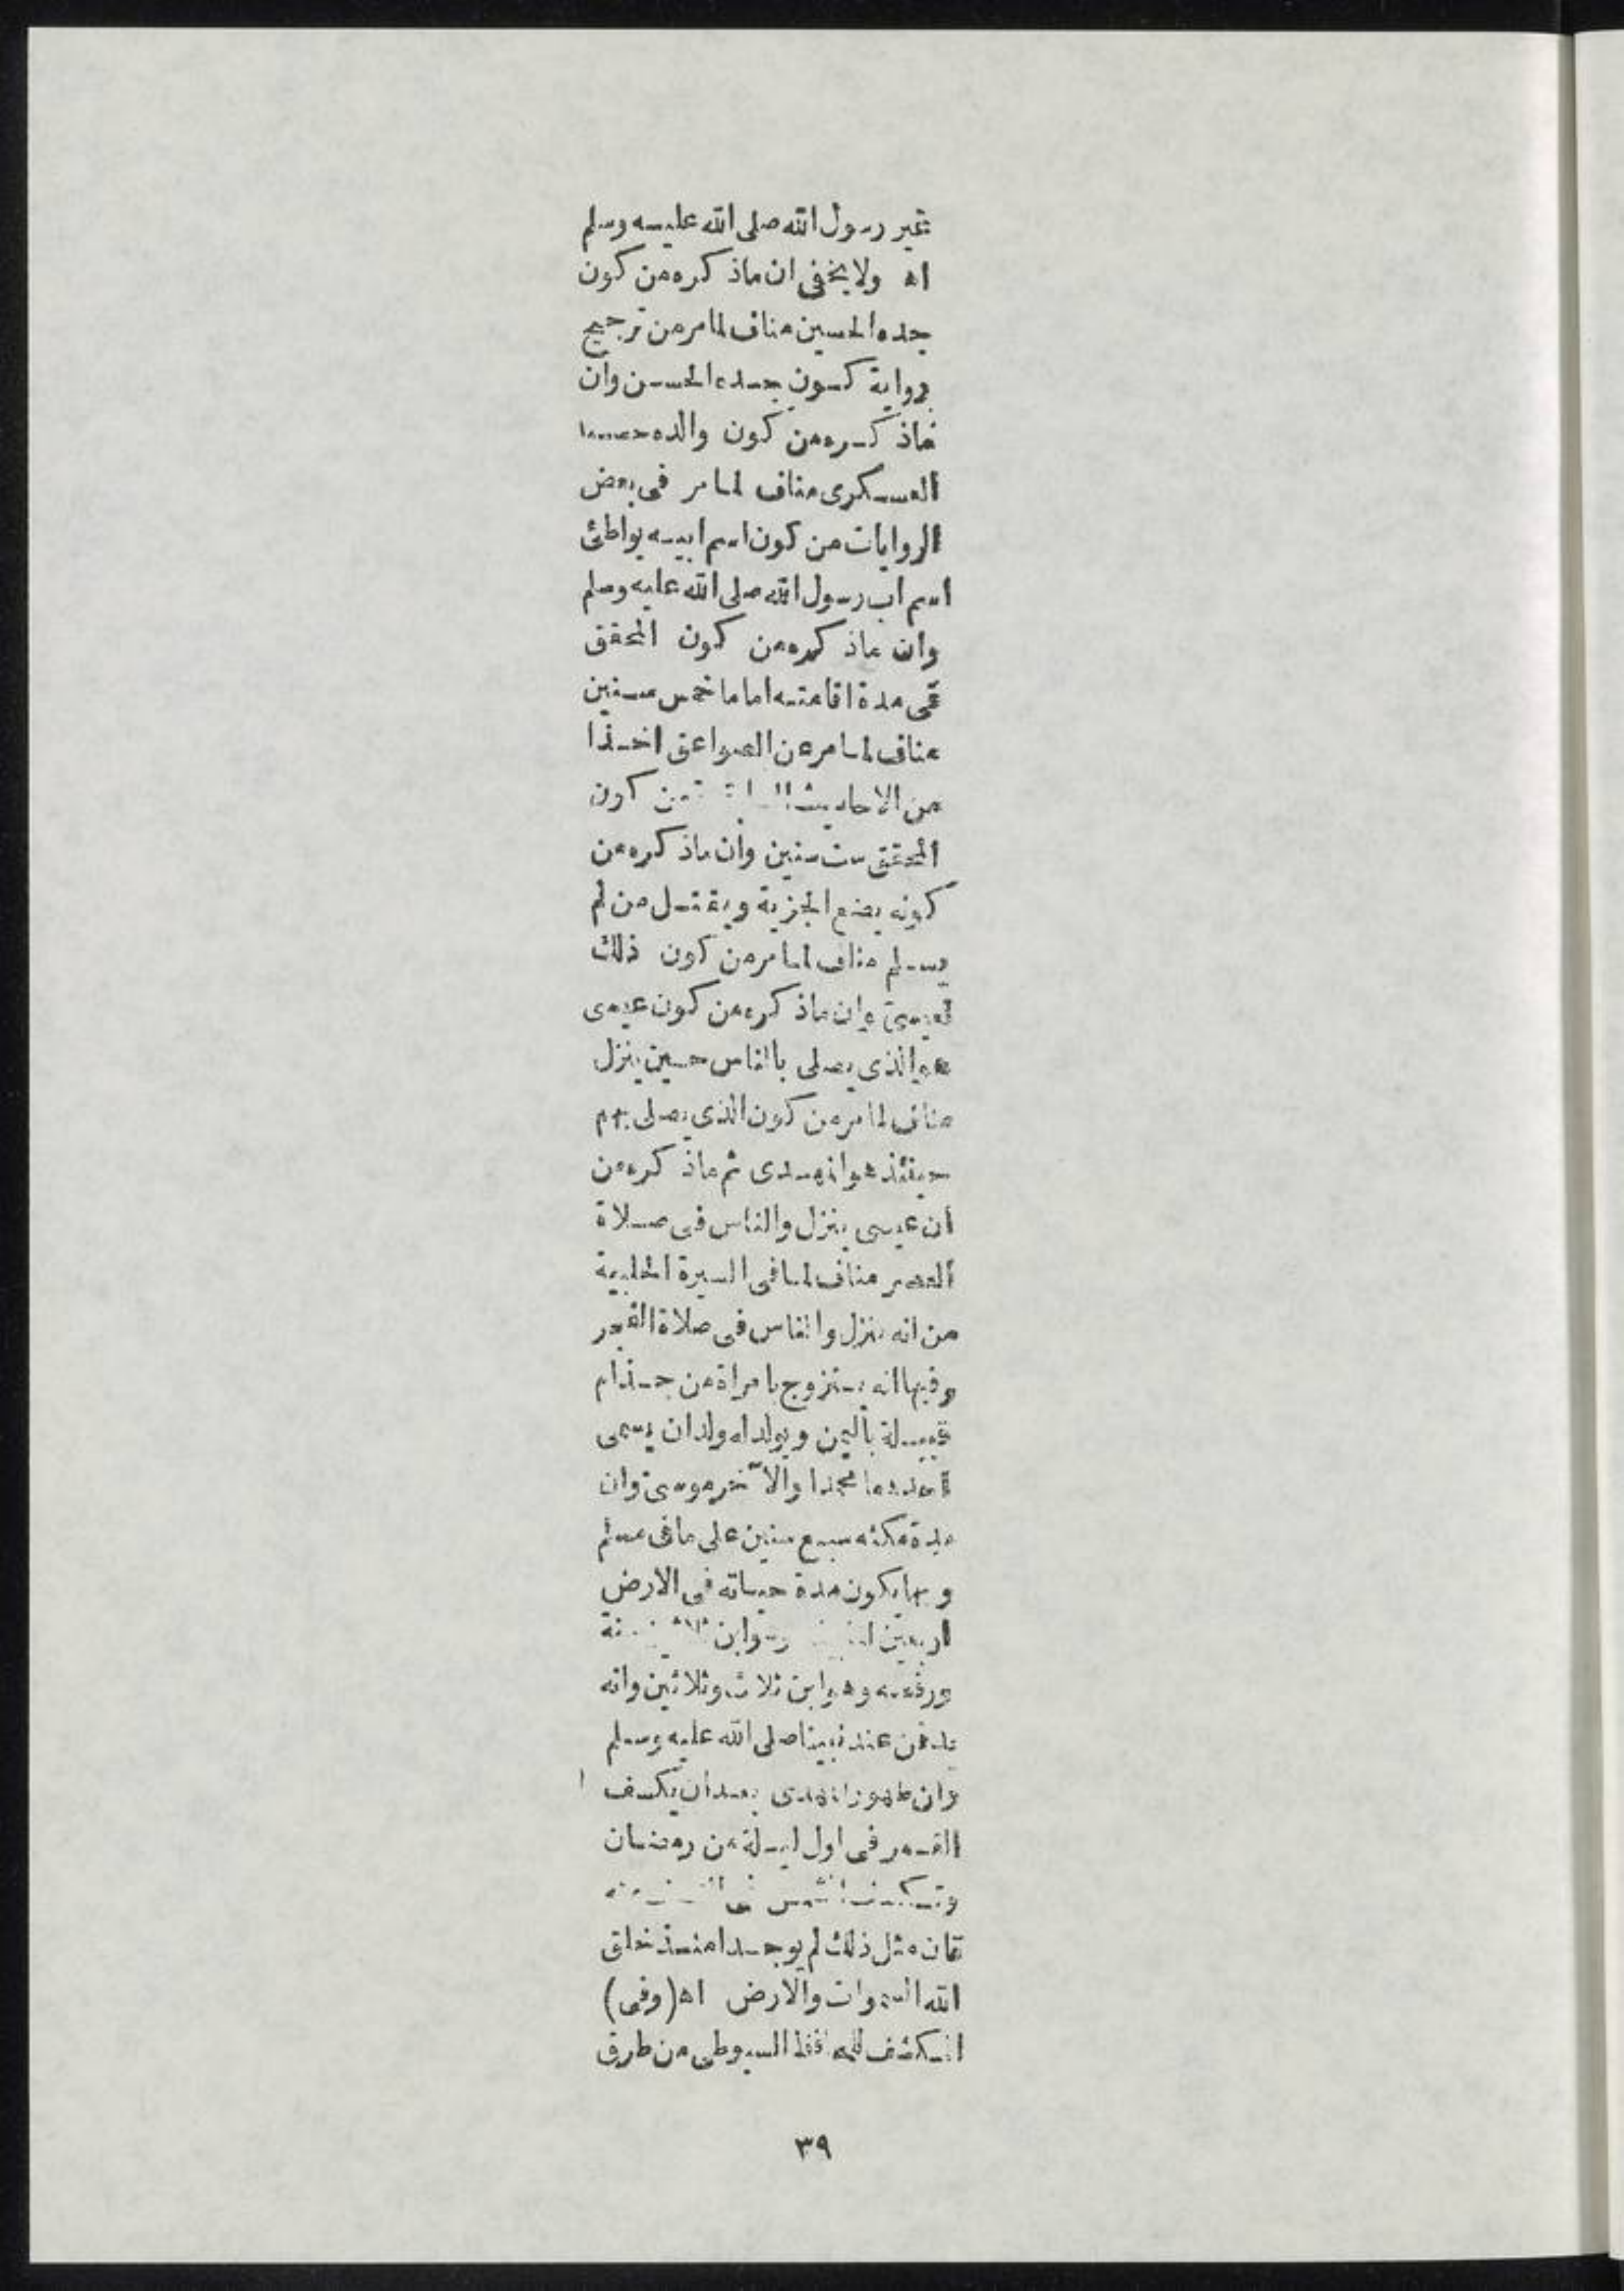 غير رسول الله صلى الله عليه وسلم
اه ولا يخفى ان ماذكره من كون
جده الحسين مناف لما مر من ترجيح
رواية كون جده الحسن وان
ماذكره من كون والده
العسكرى مناف لما مر فى بعض
الروايات من كون اسم ابيه يواطئ
اسم اب رسول الله صلى الله عليه وسلم
وان ماذكره من كون المحقق
فى مدة اقامته اماما خمس سنين
مناف لما مر عن الصواعق اخذا
من الاحاديث من كون
المحقق ست سنين وان ماذكره من
كونه يضع الجزية ويقتل من لم
يسلم مناف لما مر من كون ذلك
لعيسى وان ماذكره من كون عيسى
هو الذى يصلى بالناس حين ينزل
مناف لما مر من كون الذى يصلى بهم
حينئذ هو المهدى ثم ماذكره من
ان عيسى ينزل والناس فى صلاة
العصر مناف لما فى السيرة الحلبية
من انه ينزل والناس فى صلاة الفجر
وفيها انه يتزوج بامراة من جذام
قبيلة باليمن ويولد له ولدان يسمى
احدهما محمدا والآخر موسى وان
مدة مكثه سبع سنين على ما فى مسلم
وبها يكون مدة حياته فى الارض
اربعين وابن سنة
ورفعه وهو ابن ثلاث وثلاثين وانه
يدفن عند نبينا صلى الله عليه وسلم
وان ظهور المهدى بعد ان يكسف
القمر فى اول ليلة من رمضان
وتكسف الشمس فى النصف منه
فان مثل ذلك لم يوجد منذ خلق
الله السموات والارض اه (وفى)
الكشف للحافظ السيوطى من طرق
٣٩